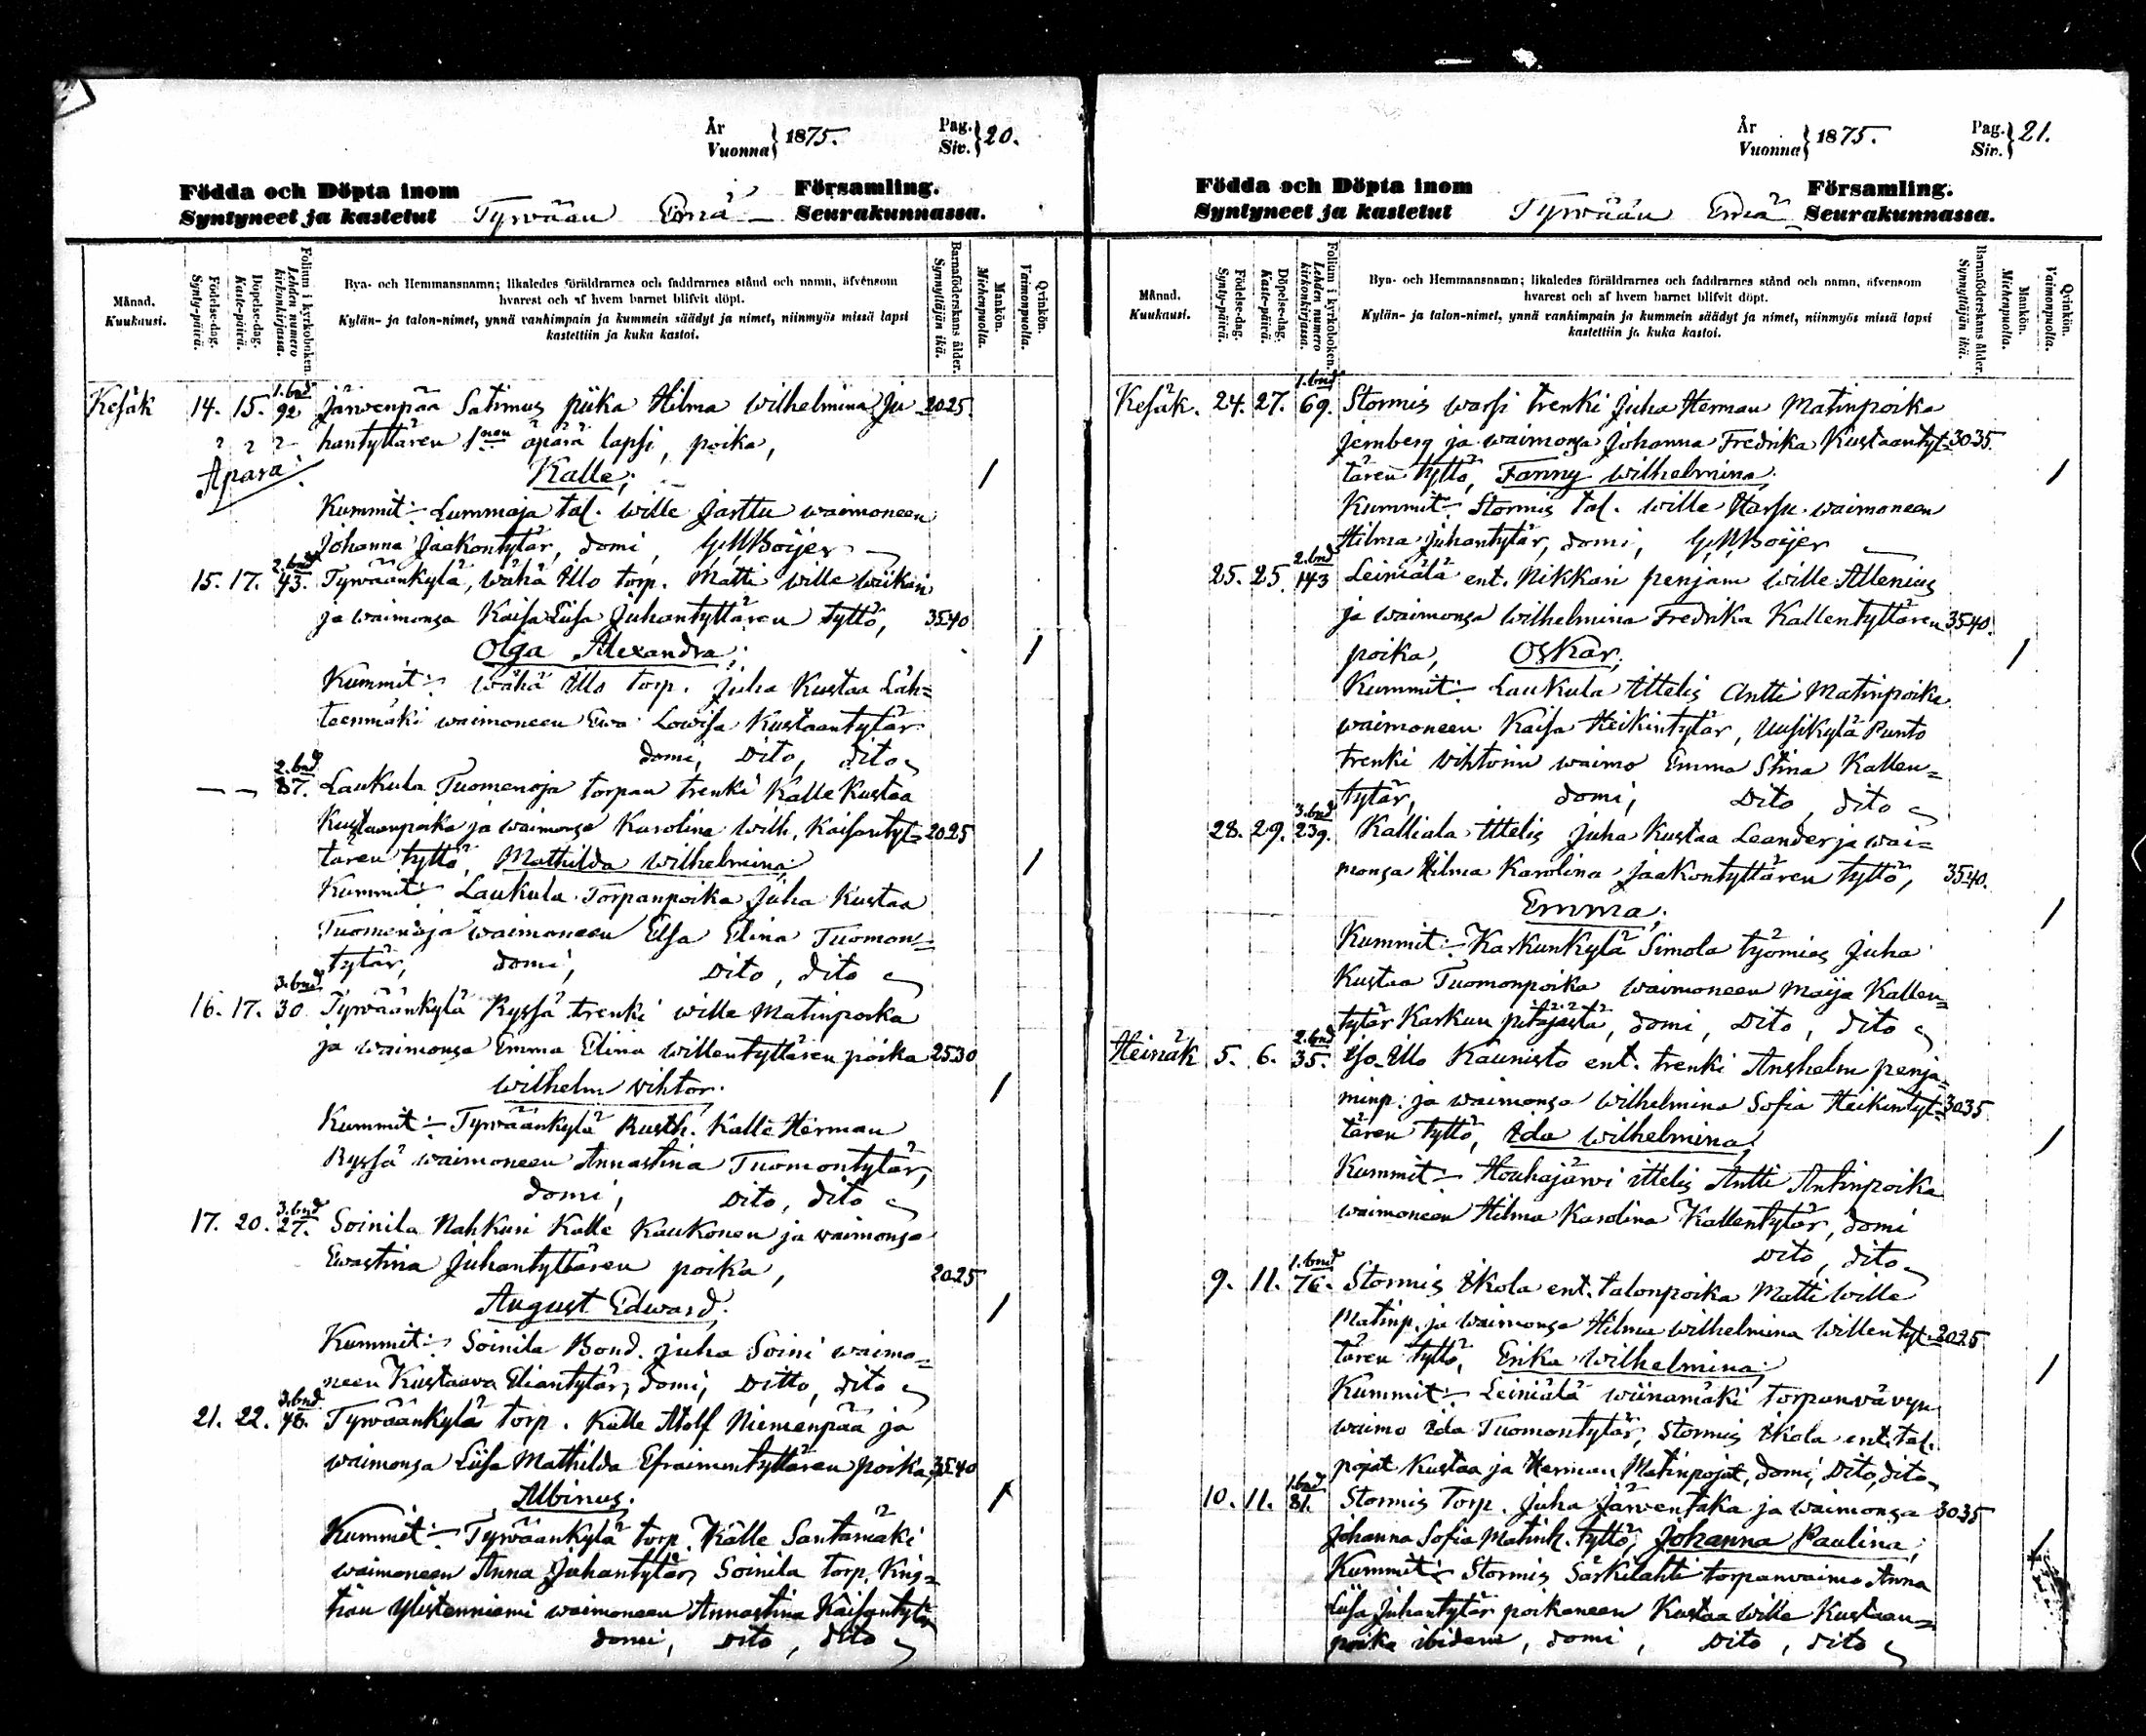 År
Vuonna } 1875.
Pag.
Siv. } 20.
Födda och Döpta inom
Syntyneet ja kastetut
Tyrwään Emä
Församling.
Seurakunnassa.
Månad.
Kuukausi.
Födelse-dag.
Synty-päivä.
Döpelse-dag.
Kaste-päivä.
Folium i kyrkoboken.
Lehden numero kirkonkirjassa.
Bya- och Hemmansnamn; likaledes föräldrarnes och faddrarnes stånd och namn, äfvensom
hvarest och af hvem barnet blifvit döpt.
Kylän- ja talon-nimet, ynnä vanhimpain ja kummein säädyt ja nimet, niinmyös missä lapsi
kastettiin ja kuka kastoi.
Barnaföderskans ålder.
Synnyttäjän ikä.
Mankön.
Miehenpuolta.
Qvinkön.
Vaimonpuolta.
1. bnd
Kesäk 14. 15. 92 Järwenpää Satimus piika Hilma Wilhelmina Ju 20 25.
hantyttären 1nen äpärä lapsi, poika,
Äpärä: Kalle;
Kummit:- Lummaja tal. Wille Jarttu waimoneen
Johanna Jaakontytär, domi,
2. bnd
15. 17. 43. Tyrwäänkylä, Wähä Illo torp. Matti Wille Wiikari
ja waimonsa Kaisa Liisa Juhantyttären tyttö, 35 40
Olga Alexandra;
Kummit:- Wähä Illo torp. Juha Kustaa Läh=
teenmäki waimoneen Ewa Lowisa Kustaantytär
domi, Dito, dito
2. bnd
— — 87. Laukula Tuomenoja torpan trenki Kalle Kustaa
Kustaanpoika ja waimonsa Karolina Wilh. Kaisantyt= 20 25
tären tyttö, Mathilda Wilhelmina;
Kummit:- Laukula Torpanpoika Juha Kustaa
Tuomenoja waimoneen Elsa Elina Tuomon=
tytär, domi, Dito, dito
3. bnd
16. 17. 30 Tyrwäänkylä Ryssä trenki Wille Matinpoika
ja waimonsa Emma Elina Willentyttären poika 25 30
Wilhelm Vihtor.
Kummit:- Tyrwäänkylä Rusth. Kalle Herman
Ryssä waimoneen Annastina Tuomontytär,
domi, Dito, dito
3. bnd
17. 20. 27. Soinila Nahkuri Kalle Kaukonen ja waimonsa
Ewastina Juhantyttären poika, 20 25
August Edward;
Kummit:- Soinila Bond. Juha Soini waimo=
neen Kustaava Eliantytär, domi, Ditto, dito
3. bnd
21. 22. 48. Tyrwäänkylä torp. Kalle Adolf Niemenpää ja
waimonsa Liisa Mathilda Efraimintyttären poika, 35 40
Albinus.
Kummit:- Tyrwäänkylä torp. Kalle Santamäki
waimoneen Anna Juhantytär, Soinila torp. Kris=
tian Ylistenniemi waimoneen Annastina Kaisantytär
domi, Dito, dito
År
Vuonna } 1875.
Pag.
Siv. } 21.
Födda och Döpta inom
Syntyneet ja kastetut
Tyrwään Emä
Församling.
Seurakunnassa.
Månad.
Kuukausi.
Födelse-dag.
Synty-päivä.
Döpelse-dag.
Kaste-päivä.
Folium i kyrkoboken.
Lehden numero kirkonkirjassa.
Bya- och Hemmansnamn; likaledes föräldrarnes och faddrarnes stånd och namn, äfvensom
hvarest och af hvem barnet blifvit döpt.
Kylän- ja talon-nimet, ynnä vanhimpain ja kummein säädyt ja nimet, niinmyös missä lapsi
kastettiin ja kuka kastoi.
Barnaföderskans ålder.
Synnyttäjän ikä.
Mankön.
Miehenpuolta.
Qvinkön.
Vaimonpuolta.
1. bnd
Kesäk. 24. 27. 69. Stormis warsi trenki Juha Herman Matinpoika
Jernberg ja waimonsa Johanna Fredrika Kustaantyt= 30 35.
tären tyttö, Fanny Wilhelmina;
Kummit:- Stormis tal. Wille Harsu waimoneen
Hilma Juhantytär, domi,
2. bnd
25. 25. 143 Leiniälä ent. Nikkari penjam Wille Allenius
ja waimonsa Wilhelmina Fredrika Kallentyttären 35 40.
poika, Oskar;
Kummit:- Laukula Ittelis Antti Matinpoika
waimoneen Kaisa Heikintytär, Uusikylä Punto
trenki Vihtorin waimo Emma Stina Kallen=
tytär, domi, Dito, dito
3. bnd
28. 29. 239. Kalliala Ittelis Juha Kustaa Leander ja wai=
monsa Hilma Karolina Jaakontyttären tyttö, 35 40.
Emma;
Kummit:- Karkunkylä Simola työmies Juha
Kustaa Tuomonpoika waimoneen Maija Kallen=
tytär Karkun pitäjästä, domi, Dito, dito
2. bnd
Heinäk 5. 6. 35. Iso-Illo Kaunisto ent. trenki Anshelm penja=
minp. ja waimonsa Wilhelmina Sofia Heikintyt= 30 35
tären tyttö, Ida Wilhelmina;
Kummit:- Houhajärwi ittelis Antti Antinpoika
waimoneen Hilma Karolina Kallentytär, domi
Dito, dito
1. bnd
9. 11. 76. Stormis Ikola ent. talonpoika Matti Wille
Matinp. ja waimonsa Hilma Wilhelmina Willentyt= 20 25
tären tyttö, Erika Wilhelmina;
Kummit:- Leiniälä Wiinamäki torpanvävyn
waimo Ida Tuomontytär, Stormis Ikola ent. tal.
pojat Kustaa ja Herman Matinpojat, domi, Dito, dito
1. bnd
10. 11. 81. Stormis Torp. Juha Järwentaka ja waimonsa 30 35
Johanna Sofia Matink. tyttö, Johanna Paulina;
Kummit:- Stormis Särkilahti torpanwaimo Anna
Liisa Juhantytär poikaneen Kustaa Wille Kustaan=
poika ibidem, domi, Dito, dito